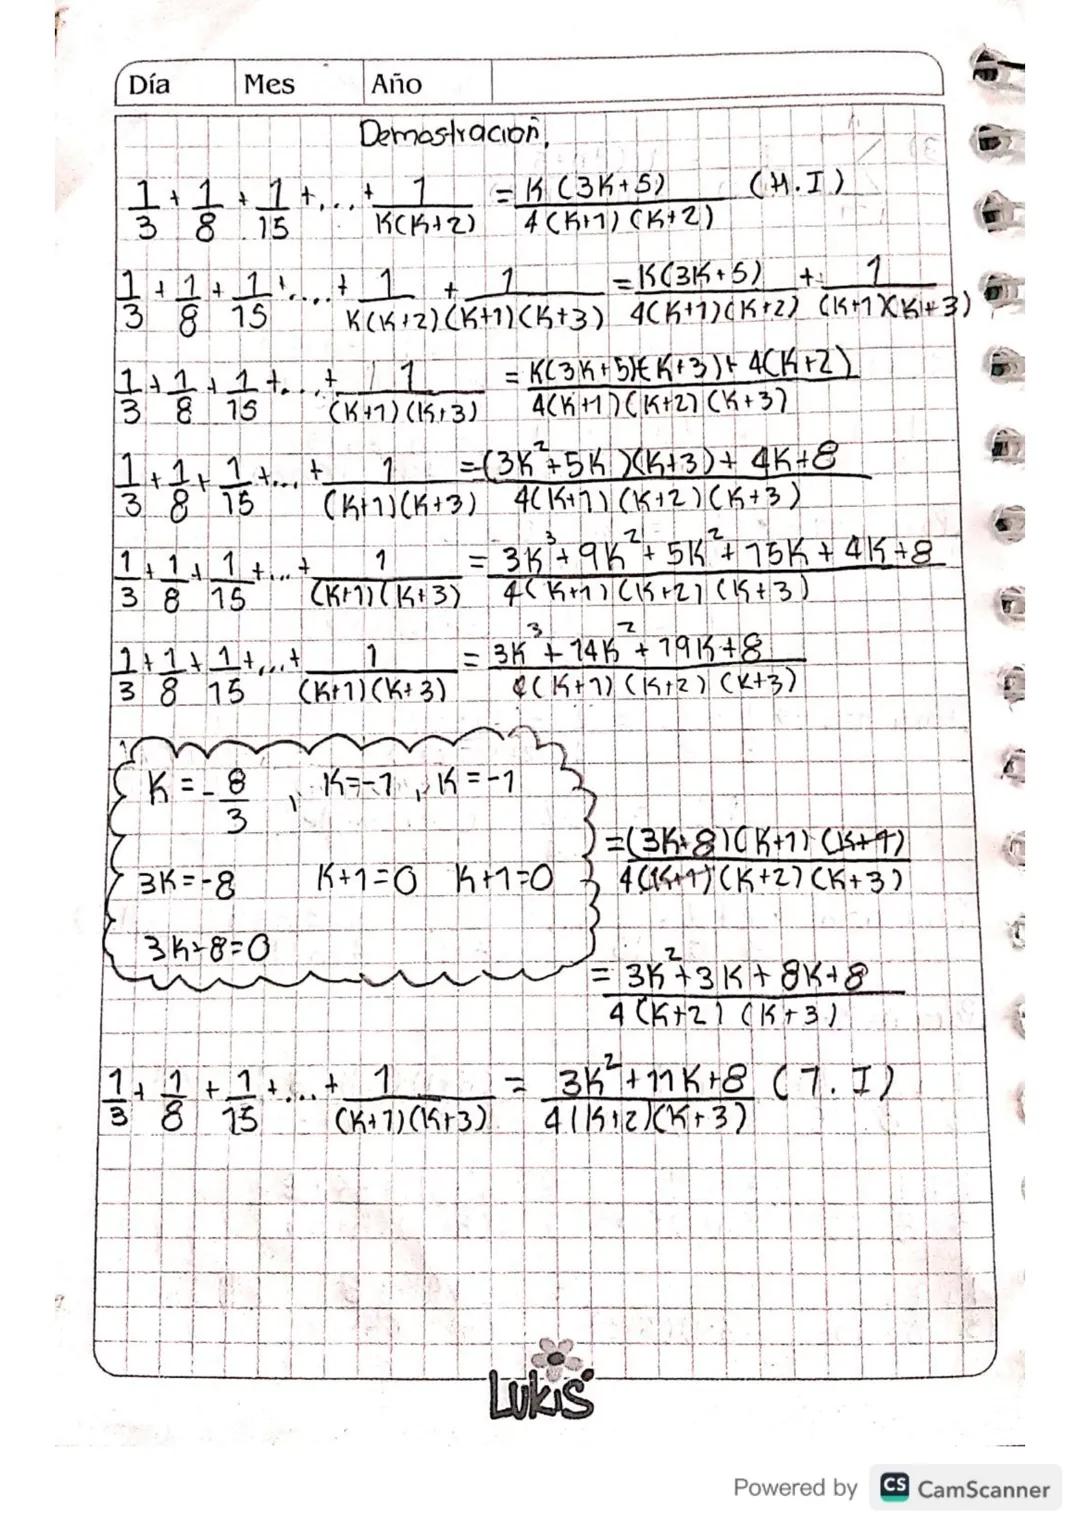 Día Mes Año
Demostración,
1/3 + 1/8 + 1/15 + ... + 1/K(K+2) = K(3K+5)/4(K+1)(K+2) (H.I)
1/3 + 1/8 + 1/15 + .... + 1/K(K+2) + 1/(K+1)(K+3) = K(3K+5)/4(K+1)(K+2) + 1/(K+1)(K+3)
1/3 + 1/8 + 1/15 + ... + 1/(K+1)(K+3) = K(3K+5)(K+3) + 4(K+2)/4(K+1)(K+2)(K+3)
1/3 + 1/8 + 1/15 + ... + 1/(K+1)(K+3) = (3K²+5K)(K+3) + 4K+8/4(K+1)(K+2)(K+3)
1/3 + 1/8 + 1/15 + ... + 1/(K+1)(K+3) = 3K³ + 9K² + 5K² + 15K + 4K + 8/4(K+1)(K+2)(K+3)
1/3 + 1/8 + 1/15 + ... + 1/(K+1)(K+3) = 3K³ + 14K² + 19K + 8/4(K+1)(K+2)(K+3)
K = -8/3 , K=-1 , K=-1
= (3K+8)(K+1)(K+1)/4(K+1)(K+2)(K+3)
3K=-8 K+1=0 K+1=0
3K+8=0
= 3K²+3K+8K+8/4(K+2)(K+3)
1/3 + 1/8 + 1/15 + ... + 1/(K+1)(K+3) = 3K²+11K+8/4(K+2)(K+3) (T.I)
LUKIS
Powered by CS CamScanner